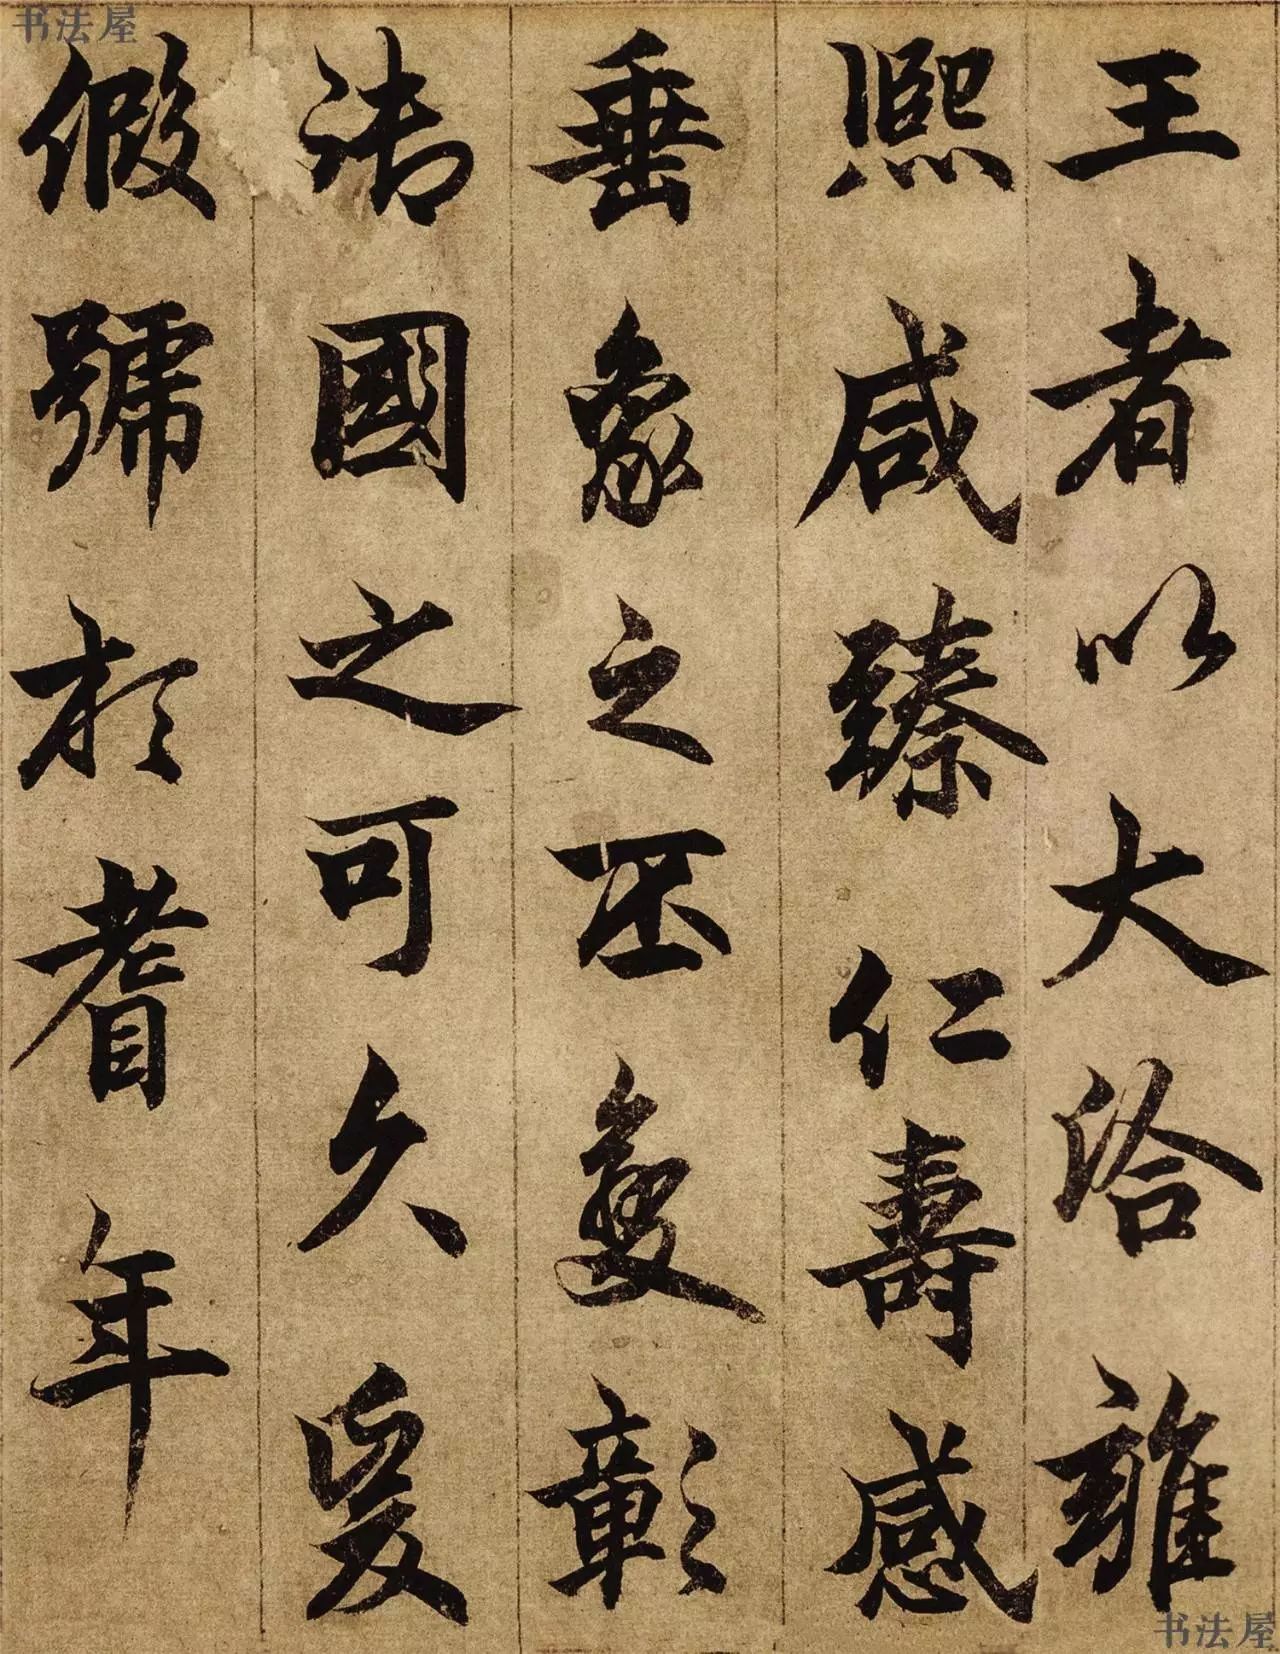 王者以大洽雍
熙咸臻仁壽感
垂象之丕變彰
御國之可久爰
假號於耆年
书法屋
书法屋